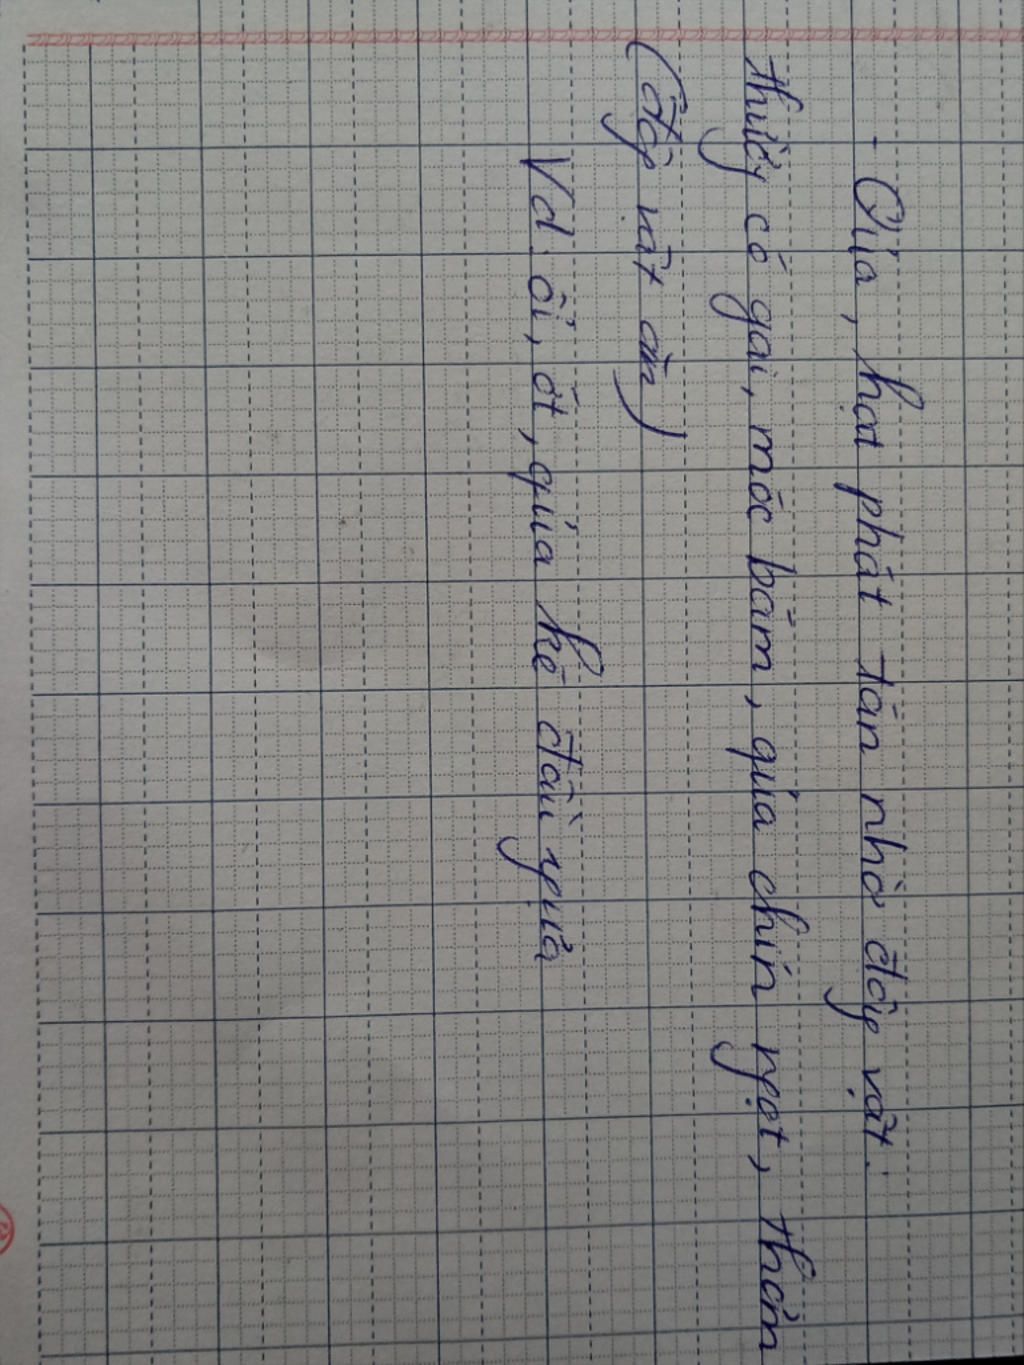 - Quả, hạt phát tán nhờ động vật:
thường có gai, móc bám, quả chín ngọt, thơm
(động vật ăn)
Vd: ổi, ớt, quả ké đầu ngựa